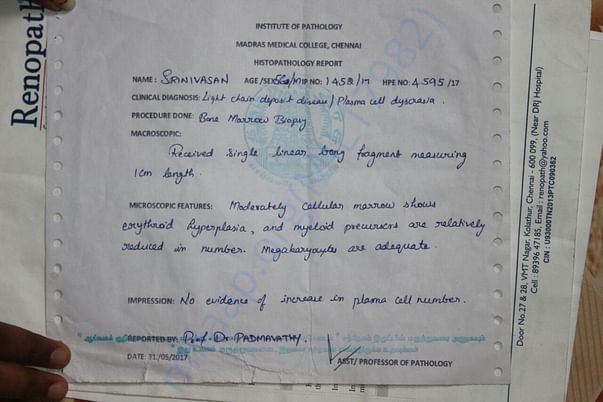 INSTITUTE OF PATHOLOGY
MADRAS MEDICAL COLLEGE, CHENNAI
HISTOPATHOLOGY REPORT
NAME : SRINIVASAN AGE /SEX: 56/M IP NO: 1458/17 HPE NO: 4595/17
CLINICAL DIAGNOSIS: Light chain deposit disease / Plasma cell dyscrasia.
PROCEDURE DONE: Bone Marrow Biopsy
MACROSCOPIC:
Received single linear bony fragment measuring
1cm length.
MICROSCOPIC FEATURES: Moderately cellular marrow shows
erythroid hyperplasia, and myeloid precursors are relatively
reduced in number. Megakaryocytes are adequate.
IMPRESSION: No evidence of increase in plasma cell number.
REPORTED BY: Prof. Dr PADMAVATHY.
DATE: 31/05/2017
ASST/ PROFESSOR OF PATHOLOGY
Renopath
Door No.27 & 28, VMT Nagar, Kolathur, Chennai - 600 099, (Near DRJ Hospital)
Cell : 89396 47185, Email : renopath@yahoo.com
CIN : U93000TN2013PTC090382